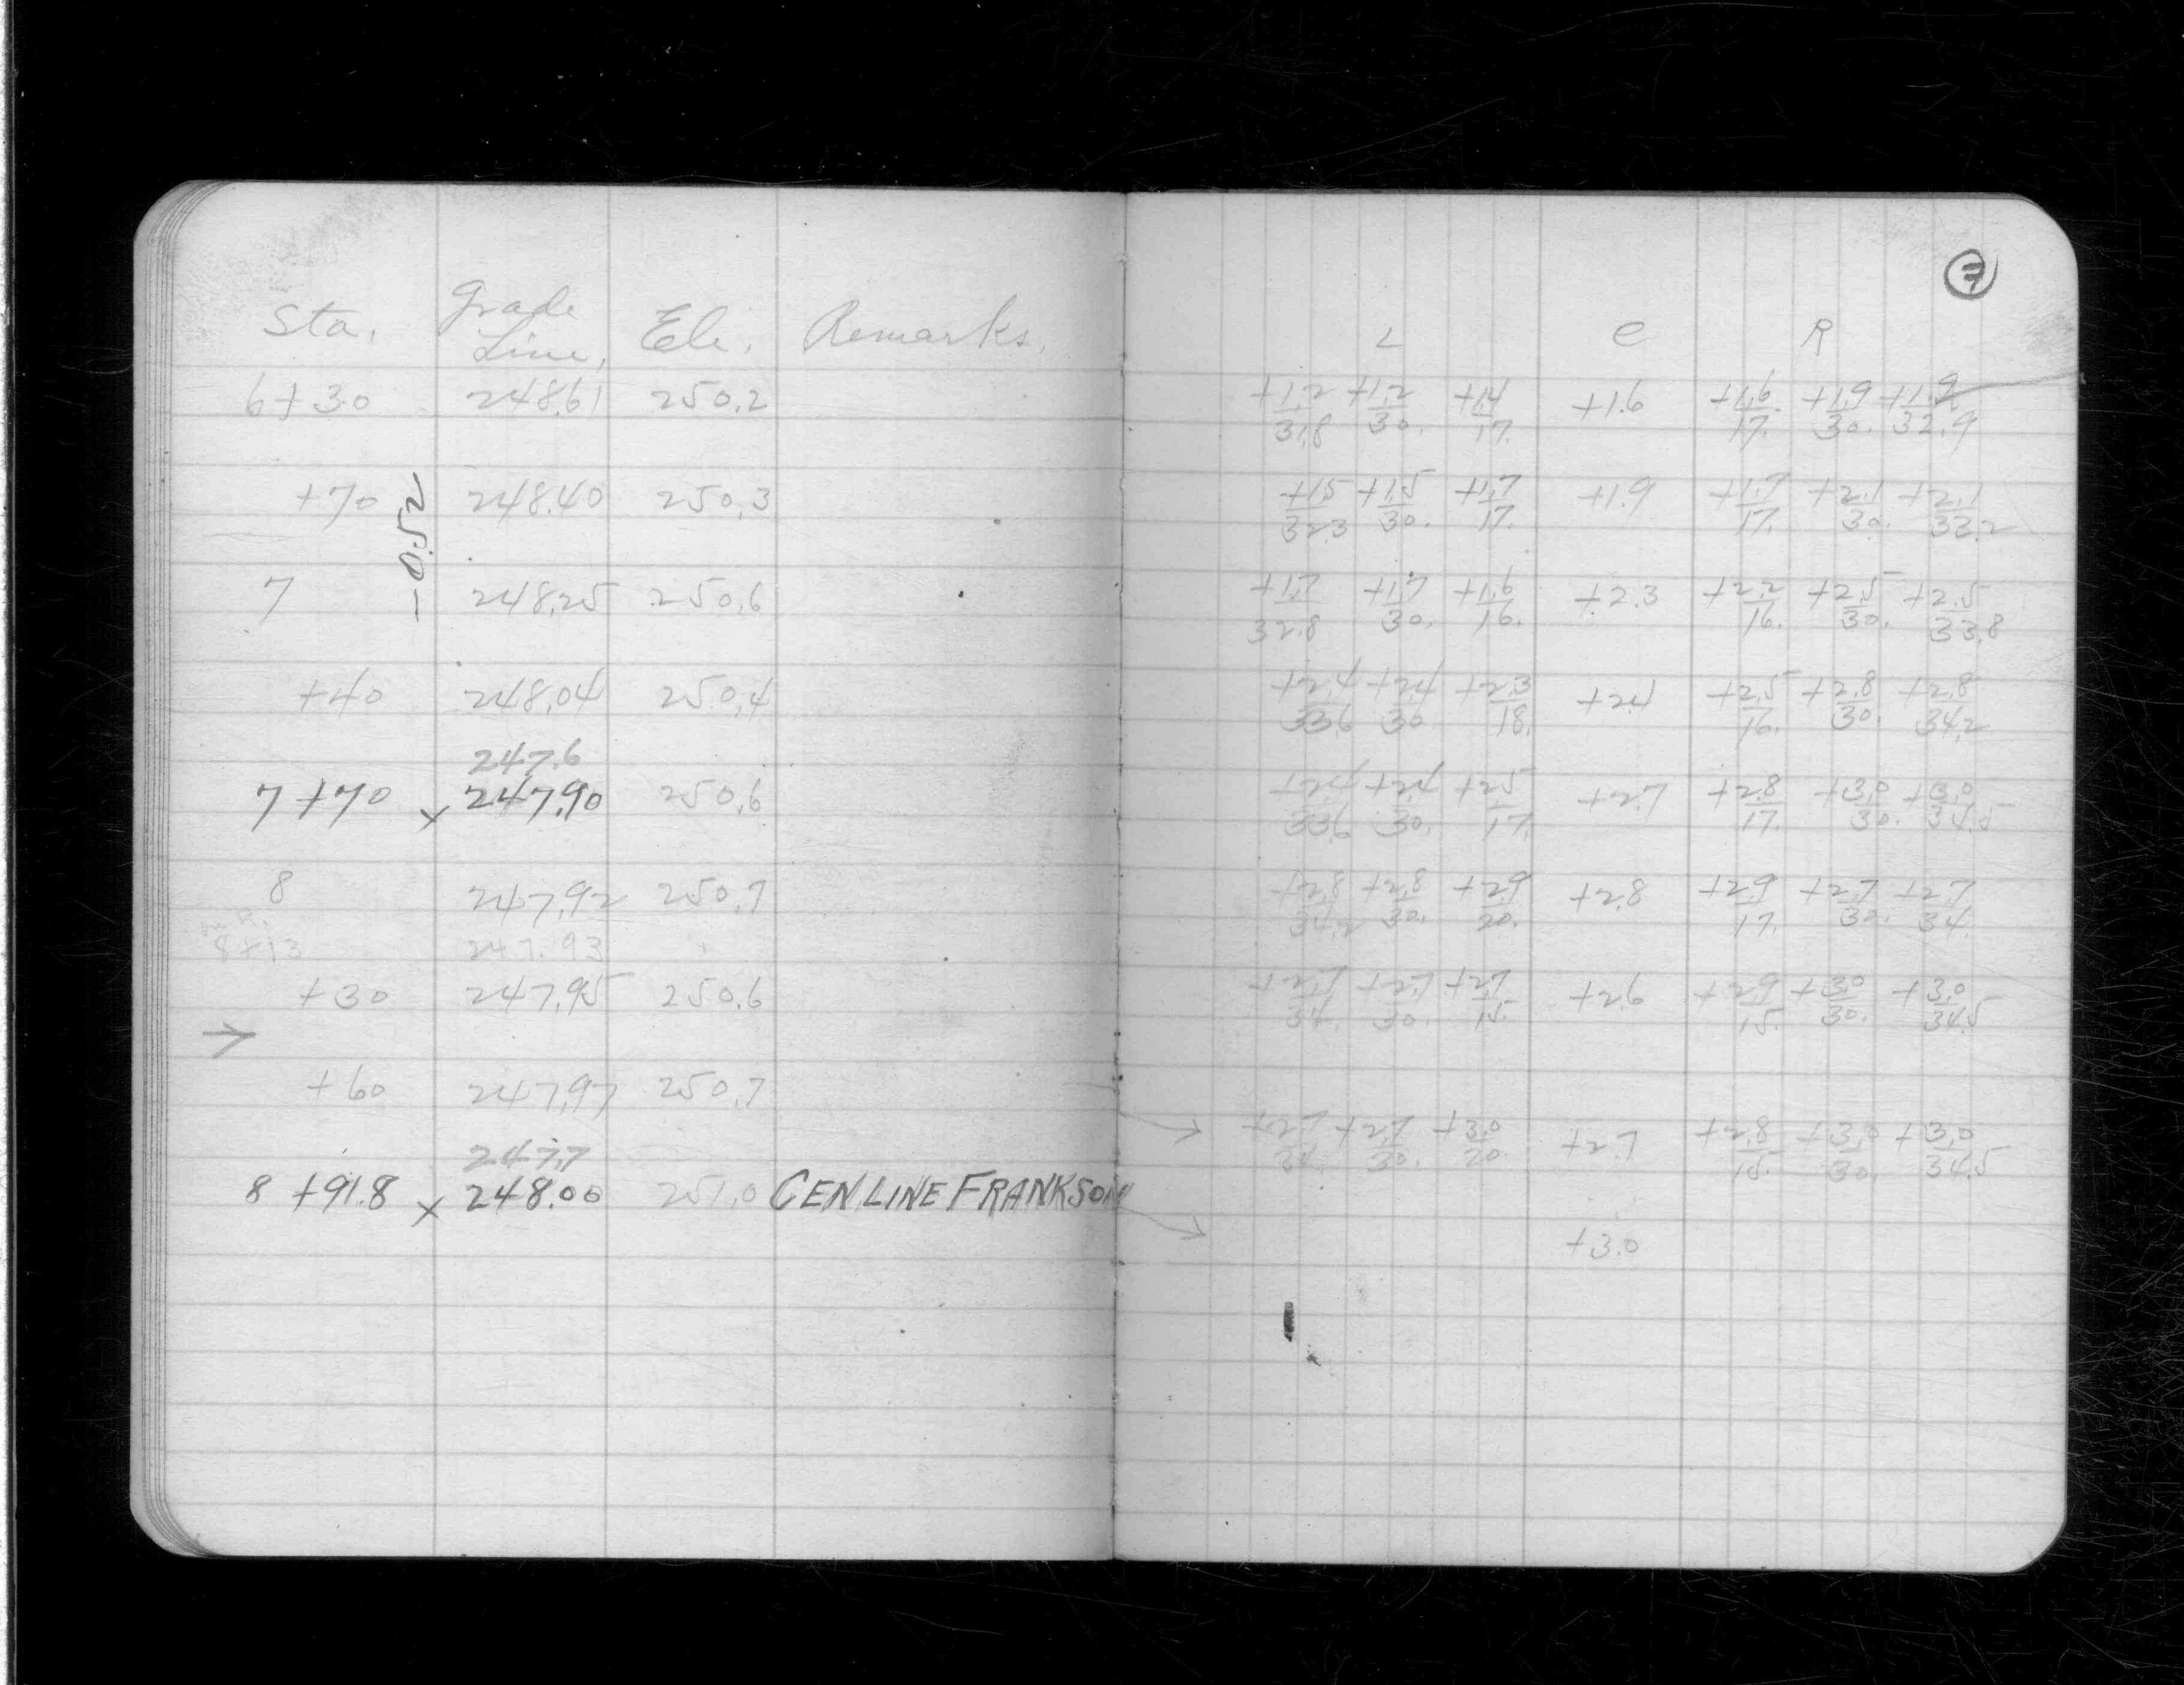 7
Sta. Grade Line, Ele. Remarks. L C R
6+30 248.61 250.2 +1.2/31.8 +1.2/30. +1.4/17. +1.6 +1.6/17. +1.9/30. +1.9/32.9
-0.52
+70 248.40 250.3 +1.5/32.3 +1.5/30. +1.7/17. +1.9 +1.9/17. +2.1/30. +2.1/33.2
7 248.25 250.6 +1.7/32.8 +1.7/30. +1.6/16. +2.3 +2.2/16. +2.5/30. +2.5/33.8
+40 248.04 250.4 +2.4/33.6 +2.4/30. +2.3/18. +2.4 +2.5/16. +2.8/30. +2.8/34.2
247.6
7+70 x 247.90 250.6 +2.4/33.6 +2.4/30. +2.5/17. +2.7 +2.8/17. +3.0/30. +3.0/34.5
8 247.92 250.7 +2.8/34.2 +2.8/30. +2.9/20. +2.8 +2.9/17. +2.7/30. +2.7/34.
8+13 247.93
+30 247.95 250.6 +2.7/34. +2.7/30. +2.7/15. +2.6 +2.9/15. +3.0/30. +3.0/34.5
→
+60 247.97 250.7 → +2.7/34. +2.7/30. +3.0/20. +2.7 +2.8/15. +3.0/30. +3.0/34.5
247.7
8+91.8 x 248.00 251.0 CENLINE FRANKSON → +3.0